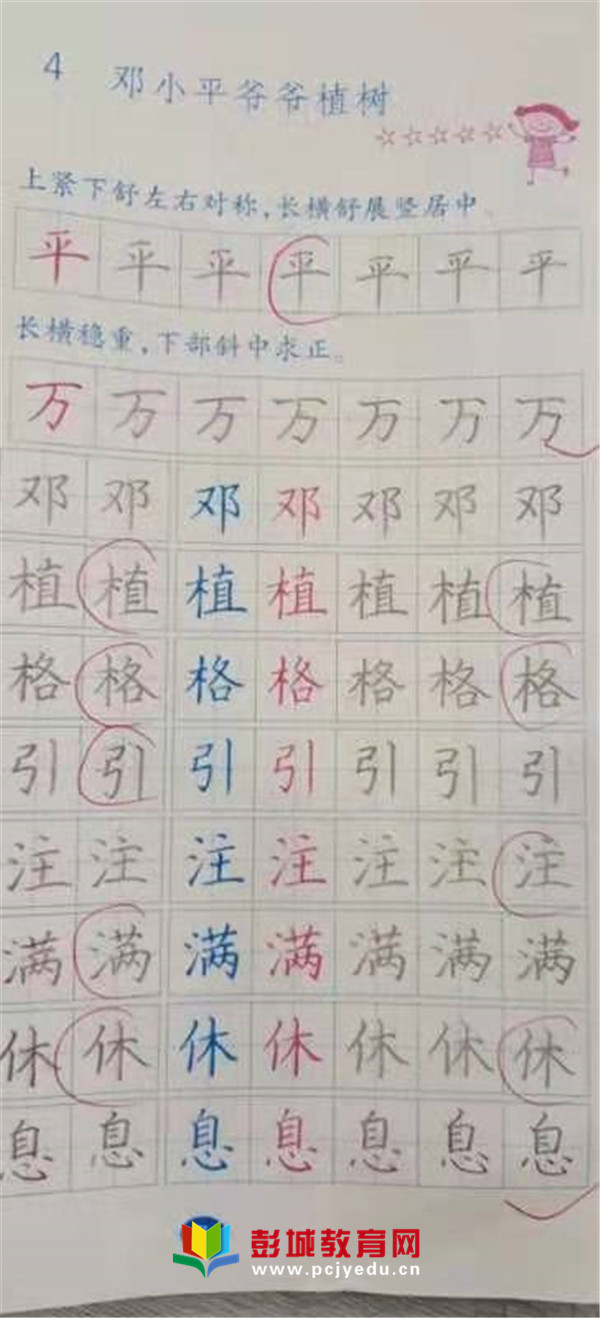 4 邓小平爷爷植树
上紧下舒左右对称,长横舒展竖居中。
平平平平平平平
长横稳重,下部斜中求正。
万万万万万万万
邓邓邓邓邓邓邓
植植植植植植植
格格格格格格格
引引引引引引引
注注注注注注注
满满满满满满满
休休休休休休休
息息息息息息息
彭城教育网
www.pcjyedu.cn